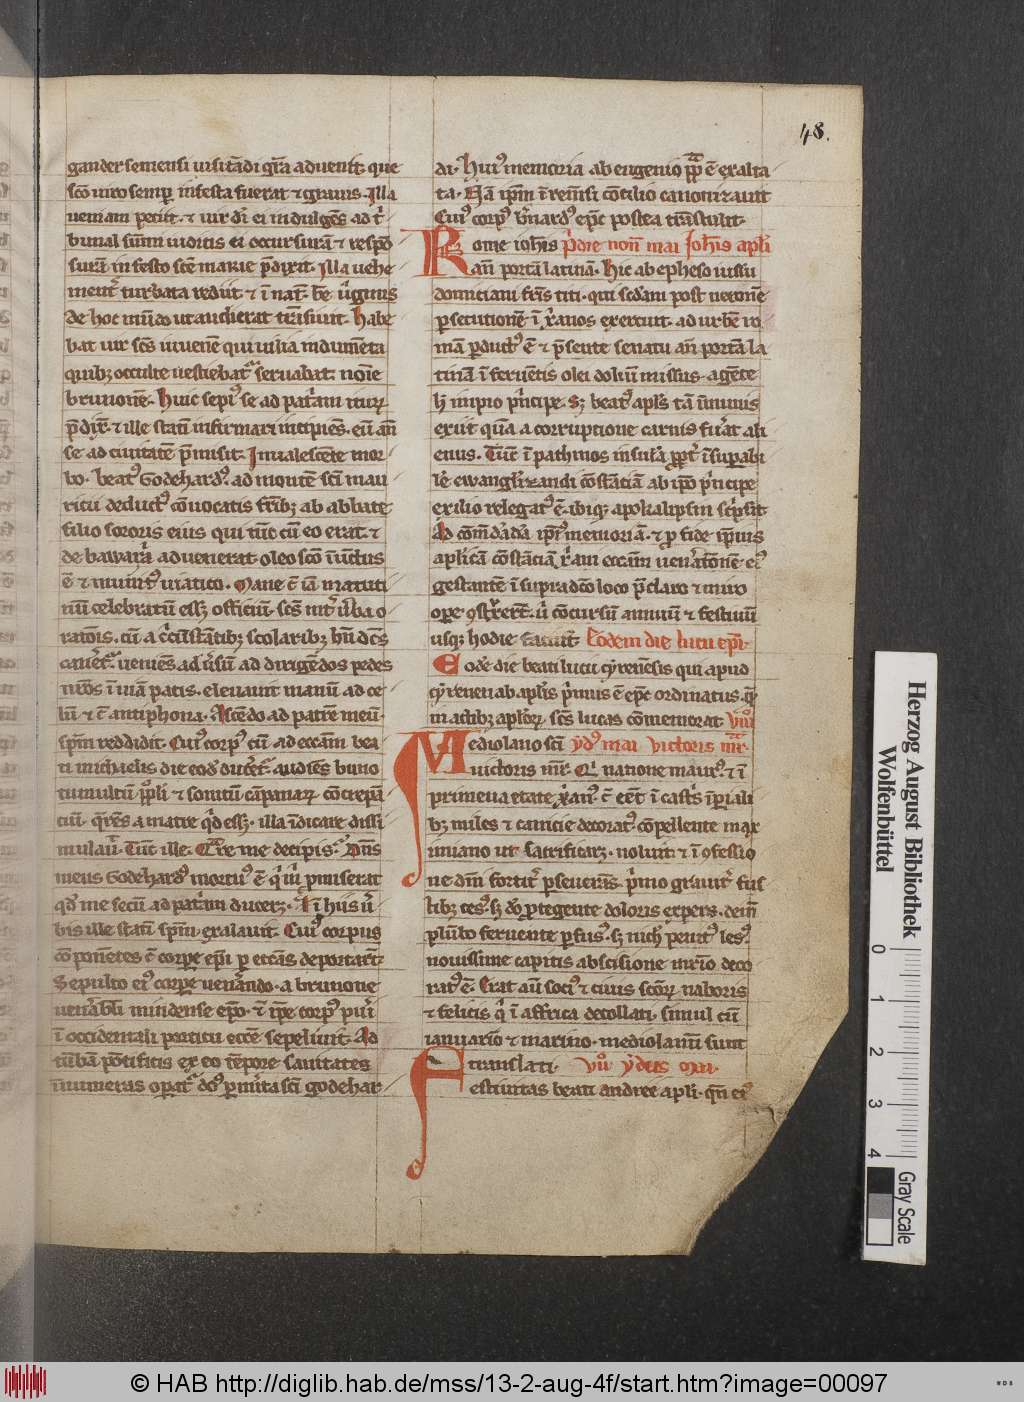 48.
gander semensi uisitādi gr̄a aduenit que
sc̄o uiro semper infesta fuerat & grauis. Illa
ueniam petiit. & uir dī ei indulgēs ad tͥ
bunal sūmi iudicis ei occursurā & respō
surā in festo sc̄e marie p̄dixit. Illa uehe
ment᷑ turbata rediit. & ī nat̄. be᷑ uͥginis
de hoc mūdo ut audierat trāsiuit. Habe
bat uir sc̄s iuuenē qui uilia indumēta
quibꝫ occulte uestiebat᷑ seruabat. noīe
brunonē. Huic sepiꝰ se ad patͥam iturū
p̄dix̄. & ille statī infirmari incipiēs. eū an̄
se ad ciuitatē p̄misit. Inualescēte mor
bo. beatꝰ Godehardꝰ. ad montē sc̄i mau
ricii deductꝰ cōuocatis fr̄ibꝫ ab abbate
filio sororis eius qui tūc cū eo erat. &
de bawarͣ aduenerat oleo sc̄o īūctus
ē & muniꝰ uiatico. Mane ē iā matuti
nū celebratū essꝫ officiū. sc̄s int͛ uͥba o
ratōīs. cū a cͥcūstātibꝫ scolaribꝫ hn̄ dc̄s
caneret᷑. ueniēs ad uͥsū ad dirigēdos pedes
nr̄os ī uiā pacis. eleuauit manū ad ce
lū & ē antiphona. Ascēdo ad patrē meū.
spm̄ reddidit. Cuiꝰ corpꝰ cū ad eccām bea
ti michaelis die eodē duceret᷑. audiēs bruno
tumultū ppli & sonitū cāpanaꝝ cōcrepā
ciū. q̄rēs a matre qͥd essꝫ. illa īdicare dissi
mulauͥ. Tūc ille. Cͥre me decipis. Dn̄s
meus Godehardꝰ mortuꝰ ē qͥ mͥ pmiserat
qd̄ me secū ad patͥam duceret. In hiis uͥ
bis ille statī spm̄ exalauit. Cuiꝰ corpus
cōponētes ē corpe ep̄i p eccās deportar̄t.
Sepulto eiꝰ corpe uenͣando. a brunone
uenͣabili mindense ep̄o. & ipe corpꝰ puͥi
ī occidentali porticu eccē sepeliuit. Ad
tūbā pōtificis ex eo tēpore sanitates
īnumeras operat᷑ dꝰ p mͥita sc̄i godehar
di. Huiꝰ memoria ab eugenio pp̄a ē exalta
ta. Nā ipm̄ ī remēsi cōcilio canonizauit
Cuiꝰ corpꝰ bͥnardꝰ epc̄ postea trāstulit.
Rome ioh̄is p̄die non̄ mai Joh̄is apl̄i
an̄ portā latinā. Hic ab epheso iussu
domiciani fr̄is titi. qui sc̄dam post neronē
p̄secutionē ī xͥanos exercuit. ad urbē ro
mā pductꝰ ē & p̄sente senatu an̄ portā la
tinā ī feruētis olei doliū missus. agēte
h̄ impio pͥncipe. Sꝫ beatꝰ apl̄s tā īmunis
exiit quā a corruptione carnis fuͥat ali
enus. Tūc ī pathmos insulā ꝓpt͛ īsupabi
lē ewangl̄izandi cōstāciā ab ipo pͥncipe
exilio relegatꝰ ē. ibiqꝫ apokalipsin scͥpsit
Ad cōmēdādā ipͥꝰ memoriā. & ꝓ fide ipius
aplicā cōstāciā xͥam eccām uenͣatōnē eiꝰ
gestantē ī supradc̄o loco p̄claro & miro
ope ɔstͣxeret. uͥ cōcursū annuū & festiuū
usqꝫ hodie faciūt. Eodem die lucii ep̄i.
Eodē die beati lucii cyrenēsis qui apud
cyrenen ab apl̄is pͥmus ē epc̄ ordinatus. qē
in actibꝫ apl̄oꝝ. sc̄s lucas cōmemorat viiiͦ
Mediolano sc̄i ydꝰ mai victoris mr̄.
uictoris mr̄. Qͥ natione maurꝰ. & ī
primeua etate xͥanꝰ. ē eēt ī castͥs īpiali
bꝫ miles & canicie decoratꝰ. cōpellente max
imiano ut sacrificaret. noluit & ī ɔfessio
ne dn̄i fortit͛ pseuerās. pͥmo grauit͛ fus
tibꝫ cesꝰ. sꝫ dō ptegente doloris expers. dein̄
plūbo feruente pfusꝰ. sꝫ nichͥ penitꝰ lesꝰ.
nouissime capitis abscisione mr̄io deco
ratꝰ ē. Erat aū sociꝰ ē cuius sc̄oꝝ naboris
& felicis qͥ ī affrica decollati. simul cū
ianuario & marino. mediolanū sunt
translati. viiͦ ydus mai.
Festiuitas beati andree apli. qn̄ eiꝰ
Herzog August Bibliothek
Wolfenbüttel
0 1 2 3 4
Gray Scale
© HAB http://diglib.hab.de/mss/13-2-aug-4f/start.htm?image=00097